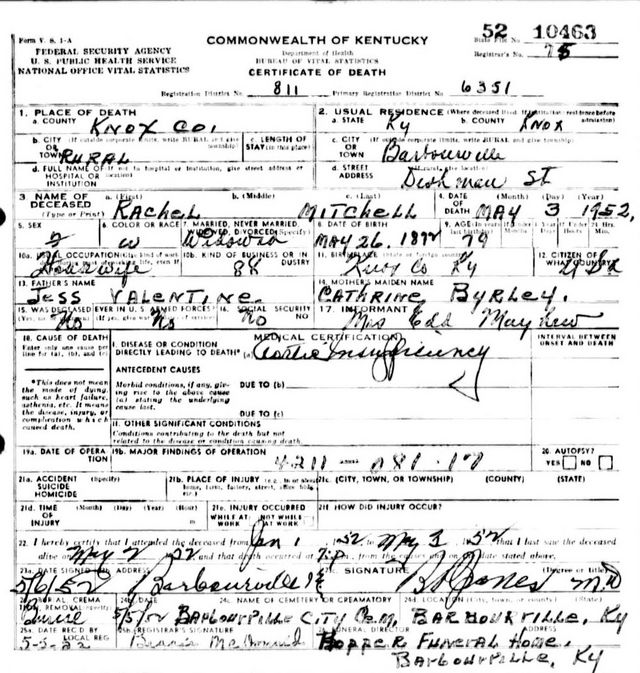 Form V. S. 1-A
COMMONWEALTH OF KENTUCKY
State File No. 52 10463
FEDERAL SECURITY AGENCY
Department of Health
Registrar's No. 75
U. S. PUBLIC HEALTH SERVICE
BUREAU OF VITAL STATISTICS
NATIONAL OFFICE VITAL STATISTICS
CERTIFICATE OF DEATH
Registration District No. 811 Primary Registration District No. 6351
1. PLACE OF DEATH
2. USUAL RESIDENCE (Where deceased lived. If institution: residence before admission)
a. COUNTY KNOX CO.
a. STATE Ky b. COUNTY KNOX
b. CITY OR TOWN RURAL
c. LENGTH OF STAY (in this place)
c. CITY OR TOWN Barbourville
d. FULL NAME OF HOSPITAL OR INSTITUTION (If not in hospital or institution, give street address or location)
d. STREET ADDRESS Dishman St
3 NAME OF DECEASED (Type or Print)
a. (First) RACHEL b. (Middle) c. (Last) MITCHELL
4. DATE OF DEATH (Month) (Day) (Year) MAY 3 1952,
5. SEX
6. COLOR OR RACE W
7. MARRIED, NEVER MARRIED, WIDOWED, DIVORCED (Specify) WIDOWED
8. DATE OF BIRTH MAY 26.
9. AGE 79
10a. USUAL OCCUPATION Housewife
10b. KIND OF BUSINESS OR INDUSTRY 88
11. BIRTHPLACE Knox Co Ky
12. CITIZEN OF WHAT COUNTRY?
13. FATHER'S NAME
14. MOTHER'S MAIDEN NAME
JESS VALENTINE.
CATHRINE BYRLEY.
15. WAS DECEASED EVER IN U. S. ARMED FORCES? No No
16. SOCIAL SECURITY NO
17. INFORMANT Mrs Edd Mayhew
18. CAUSE OF DEATH
MEDICAL CERTIFICATION
INTERVAL BETWEEN ONSET AND DEATH
Enter only one cause per line for (a), (b), and (c)
I. DISEASE OR CONDITION
DIRECTLY LEADING TO DEATH* (a) Aortic Insufficiency
ANTECEDENT CAUSES
*This does not mean the mode of dying, such as heart failure, asthenia, etc. It means the disease, injury, or complication which caused death.
Morbid conditions, if any, giving rise to the above cause (a) stating the underlying cause last.
DUE TO (b)
DUE TO (c)
II. OTHER SIGNIFICANT CONDITIONS
Conditions contributing to the death but not related to the disease or condition causing death.
19a. DATE OF OPERATION
19b. MAJOR FINDINGS OF OPERATION
4211 — 081-17
20. AUTOPSY?
YES NO
21a. ACCIDENT SUICIDE HOMICIDE (Specify)
21b. PLACE OF INJURY (e.g., in or about home, farm, factory, street, office bldg., etc.)
21c. (CITY, TOWN, OR TOWNSHIP) (COUNTY) (STATE)
21d. TIME OF INJURY (Month) (Day) (Year) (Hour)
21e. INJURY OCCURRED
WHILE AT WORK NOT WHILE AT WORK
21f. HOW DID INJURY OCCUR?
22. I hereby certify that I attended the deceased from Jan 1 52 to May 3 52 that I last saw the deceased
alive on May 2 52 and that death occurred at from the causes and on the date stated above.
DATE SIGNED ADDRESS SIGNATURE (Degree or title)
5/6/52 Barbourville Jones MD
DATE 24c. NAME OF CEMETERY OR CREMATORY
5/5/52 BARBOURVILLE CITY CEM, BARBOURVILLE, Ky
25a. REC'D BY LOCAL REG
25b. REGISTRAR'S SIGNATURE
FUNERAL DIRECTOR ADDRESS
HOPPER FUNERAL HOME,
BARBOURVILLE, Ky